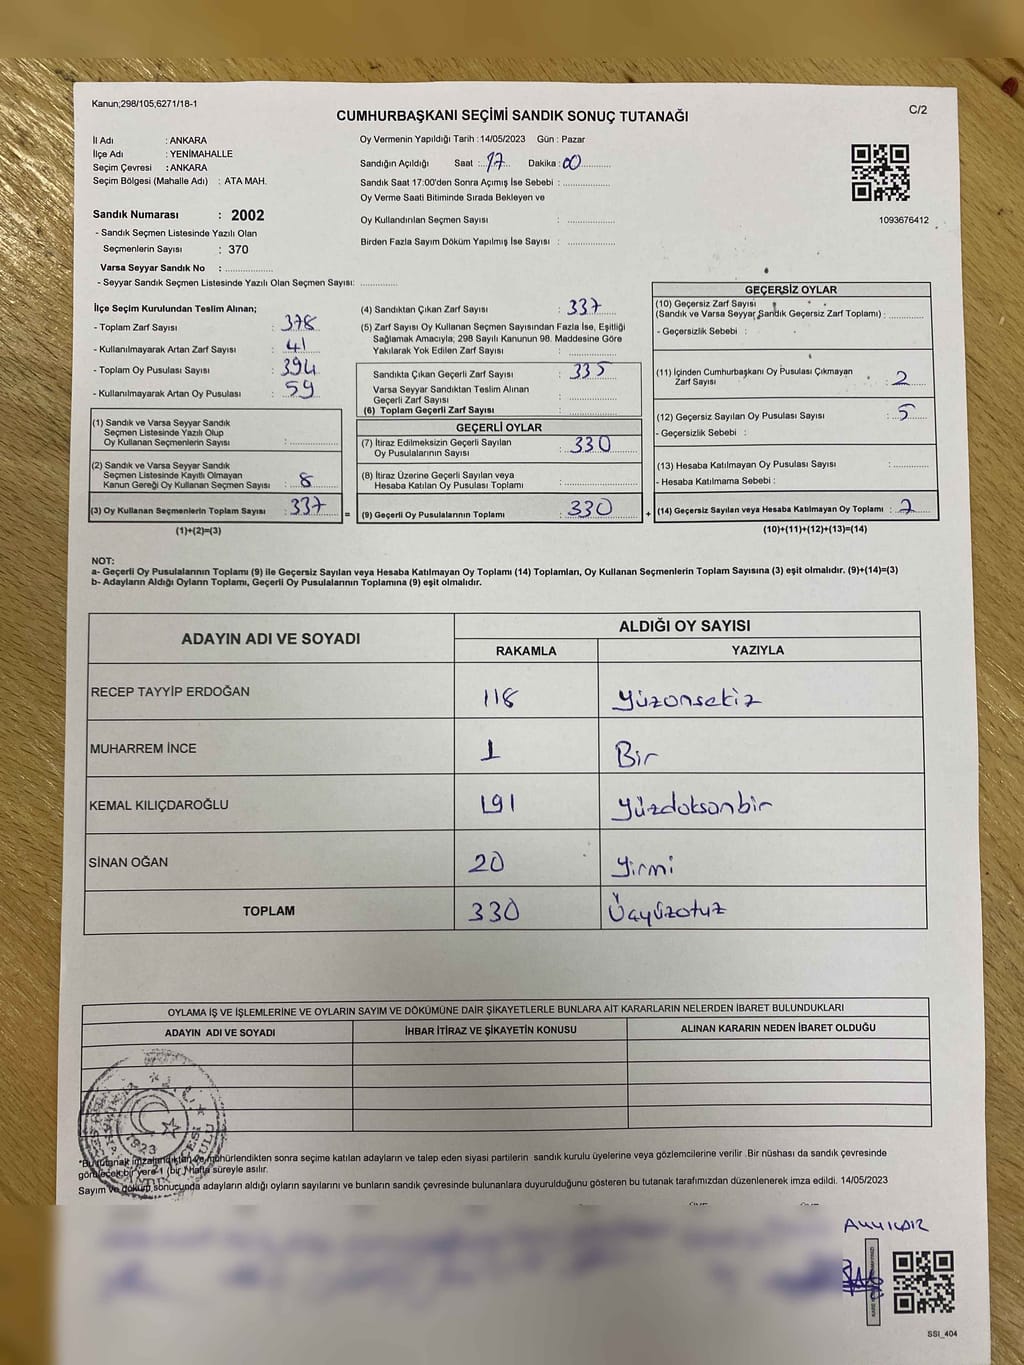 Kanun;298/105;6271/18-1
C/2
CUMHURBAŞKANI SEÇİMİ SANDIK SONUÇ TUTANAĞI
İl Adı : ANKARA
İlçe Adı : YENİMAHALLE
Seçim Çevresi : ANKARA
Seçim Bölgesi (Mahalle Adı) : ATA MAH.
Sandık Numarası : 2002
- Sandık Seçmen Listesinde Yazılı Olan
Seçmenlerin Sayısı : 370
Varsa Seyyar Sandık No :
- Seyyar Sandık Seçmen Listesinde Yazılı Olan Seçmen Sayısı:
Oy Vermenin Yapıldığı Tarih : 14/05/2023 Gün : Pazar
Sandığın Açıldığı Saat : 17 Dakika : 00
Sandık Saat 17:00'den Sonra Açımış İse Sebebi :
Oy Verme Saati Bitiminde Sırada Bekleyen ve
Oy Kullandırılan Seçmen Sayısı :
Birden Fazla Sayım Döküm Yapılmış İse Sayısı :
1093676412
İlçe Seçim Kurulundan Teslim Alınan;
- Toplam Zarf Sayısı : 378
- Kullanılmayarak Artan Zarf Sayısı : 41
- Toplam Oy Pusulası Sayısı : 394
- Kullanılmayarak Artan Oy Pusulası : 59
(1) Sandık ve Varsa Seyyar Sandık
Seçmen Listesinde Yazılı Olup
Oy Kullanan Seçmenlerin Sayısı :
(2) Sandık ve Varsa Seyyar Sandık
Seçmen Listesinde Kayıtlı Olmayan
Kanun Gereği Oy Kullanan Seçmen Sayısı : 8
(3) Oy Kullanan Seçmenlerin Toplam Sayısı : 337
(1)+(2)=(3)
(4) Sandıktan Çıkan Zarf Sayısı : 337
(5) Zarf Sayısı Oy Kullanan Seçmen Sayısından Fazla İse, Eşitliği
Sağlamak Amacıyla; 298 Sayılı Kanunun 98. Maddesine Göre
Yakılarak Yok Edilen Zarf Sayısı :
Sandıkta Çıkan Geçerli Zarf Sayısı : 335
Varsa Seyyar Sandıktan Teslim Alınan
Geçerli Zarf Sayısı :
(6) Toplam Geçerli Zarf Sayısı :
GEÇERLİ OYLAR
(7) İtiraz Edilmeksizin Geçerli Sayılan
Oy Pusulalarının Sayısı : 330
(8) İtiraz Üzerine Geçerli Sayılan veya
Hesaba Katılan Oy Pusulası Toplamı :
= (9) Geçerli Oy Pusulalarının Toplamı : 330
GEÇERSİZ OYLAR
(10) Geçersiz Zarf Sayısı
(Sandık ve Varsa Seyyar Sandık Geçersiz Zarf Toplamı) :
- Geçersizlik Sebebi :
(11) İçinden Cumhurbaşkanı Oy Pusulası Çıkmayan
Zarf Sayısı : 2
(12) Geçersiz Sayılan Oy Pusulası Sayısı : 5
- Geçersizlik Sebebi :
(13) Hesaba Katılmayan Oy Pusulası Sayısı :
- Hesaba Katılmama Sebebi :
+ (14) Geçersiz Sayılan veya Hesaba Katılmayan Oy Toplamı : 2
(10)+(11)+(12)+(13)=(14)
NOT:
a- Geçerli Oy Pusulalarının Toplamı (9) ile Geçersiz Sayılan veya Hesaba Katılmayan Oy Toplamı (14) Toplamları, Oy Kullanan Seçmenlerin Toplam Sayısına (3) eşit olmalıdır. (9)+(14)=(3)
b- Adayların Aldığı Oyların Toplamı, Geçerli Oy Pusulalarının Toplamına (9) eşit olmalıdır.
ADAYIN ADI VE SOYADI ALDIĞI OY SAYISI
RAKAMLA YAZIYLA
RECEP TAYYİP ERDOĞAN 118 Yüzonsekiz
MUHARREM İNCE 1 Bir
KEMAL KILIÇDAROĞLU 191 Yüzdoksanbir
SİNAN OĞAN 20 Yirmi
TOPLAM 330 Üçyüzotuz
OYLAMA İŞ VE İŞLEMLERİNE VE OYLARIN SAYIM VE DÖKÜMÜNE DAİR ŞİKAYETLERLE BUNLARA AİT KARARLARIN NELERDEN İBARET BULUNDUKLARI
ADAYIN ADI VE SOYADI İHBAR İTİRAZ VE ŞİKAYETİN KONUSU ALINAN KARARIN NEDEN İBARET OLDUĞU
T.C.
1923
*Bu tutanak imzalandıktan ve mühürlendikten sonra seçime katılan adayların ve talep eden siyasi partilerin sandık kurulu üyelerine veya gözlemcilerine verilir .Bir nüshası da sandık çevresinde
görülecek bir yere 1 (bir) hafta süreyle asılır.
Sayım ve döküm sonucunda adayların aldığı oyların sayılarını ve bunların sandık çevresinde bulunanlara duyurulduğunu gösteren bu tutanak tarafımızdan düzenlenerek imza edildi. 14/05/2023
SSI_404